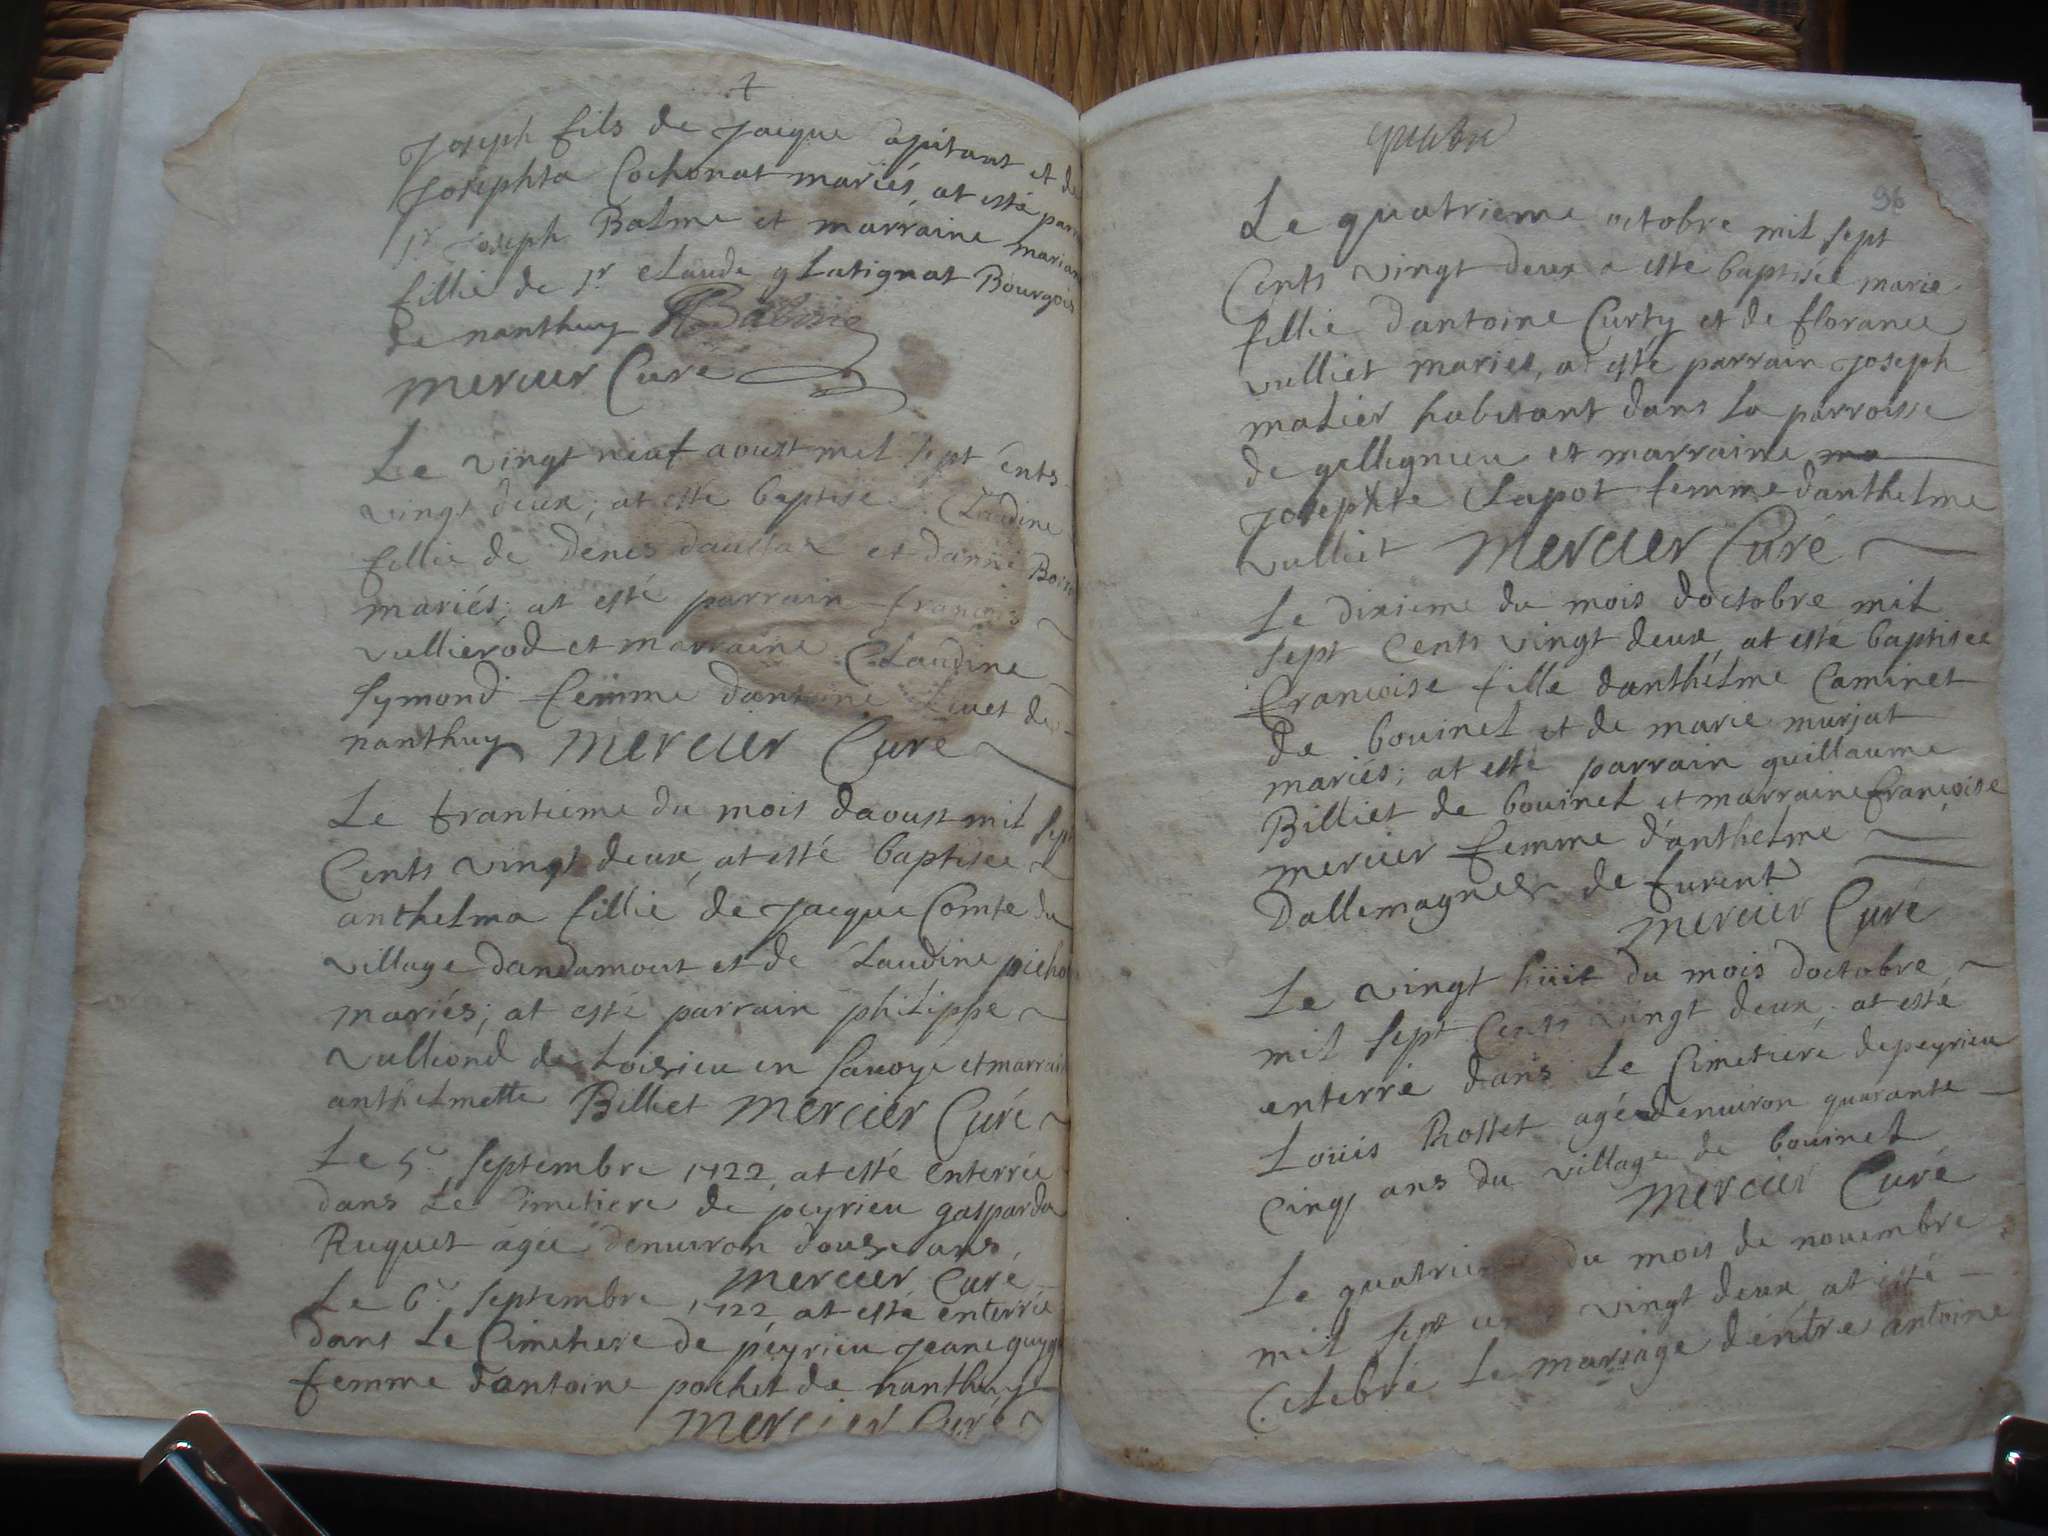 Joseph fils de Jacque apitant et de
Josephta Cochonat mariés, at esté parr
Sr Joseph Balme et marraine marian
fillie de Sr Claude g Latignat Bourgois
de nanthuy Balme
mercier Curé
Le vingt neuf aoust mil sept cents
vingt deux, at esté baptisée Claudine
fillie de Denes et danne
mariés; at esté parrain françois
vullierod et marraine Claudine
Symond femme dantoine Livet de
nanthuy mercier Curé
Le trantieme du mois daoust mil sept
Cents vingt deux, at esté baptisée
anthelma fillie de Jacque Comte du
village dandamout et de Claudine picho
mariés; at esté parrain philippe
vulliond de Loisieu en Savoye et marrain
anthelmette Billiet mercier Curé
Le 5e Septembre 1722, at esté enterrée
dans Le Cimetiere de peyrieu gasparda
Ruquet agée denuiron douse ans,
mercier Curé
Le 6e Septembre 1722 at esté enterrée
dans Le Cimetiere de peyrieu Jeane guyg
femme dantoine pochet de nanthuy
mercier Curé
quatre
96
Le quatrieme octobre mil sept
Cents vingt deux a esté baptisée marie
fillie dantoine Curty et de florance
vulliet mariés, at esté parrain Joseph
malier habitant dans La parroisse
de gellignieu et marraine ma
Josephte Clapot femme danthelme
vulliet mercier Curé
Le dixieme du mois doctobre mil
sept Cents vingt deux, at esté baptisée
francoise fille danthelme Caminet
de bouinel et de marie murjat
mariés; at esté parrain guillaume
Billiet de bouinel et marraine françoise
mercier femme d'anthelme
Dallemagne de furent
mercier Curé
Le vingt huit du mois doctobre
mil sept Cents vingt deux, at esté
enterré dans Le Cimetiere de peyrieu
Louis Rostet agé denuiron quarante
Cinq ans du village de bouinel
mercier Curé
Le quatrieme du mois de nouembre
mil sept cents vingt deux, at esté
Celebré Le mariage d'entre antoine